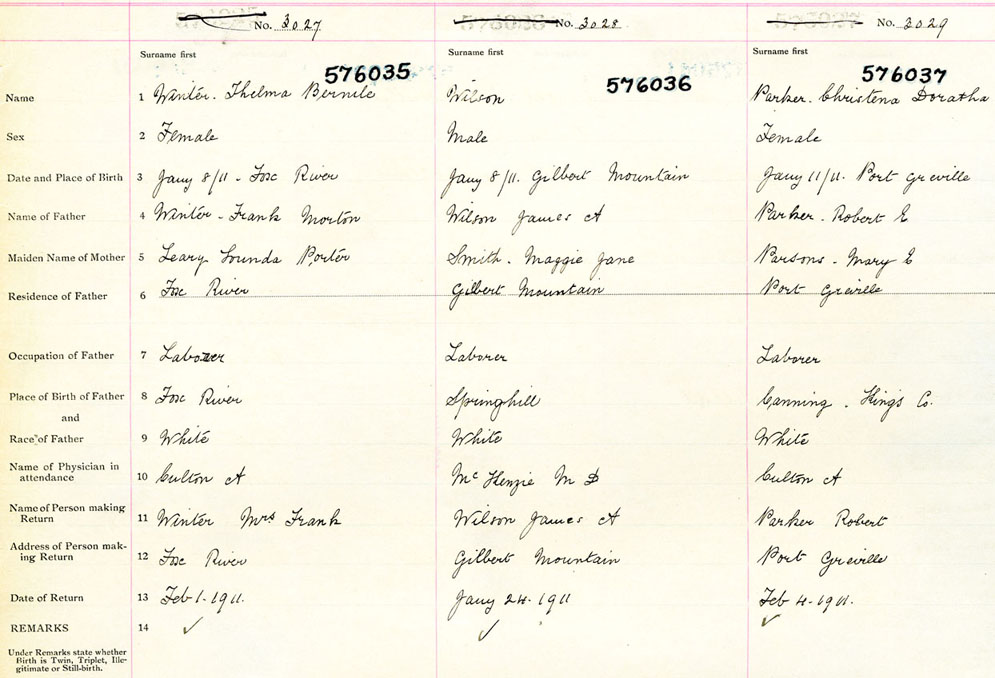 No. 3027 No. 3028 No. 3029
Surname first Surname first Surname first
576035 576036 576037
Name 1 Winter. Thelma Bernile Wilson Parker. Christena Doratha
Sex 2 Female Male Female
Date and Place of Birth 3 Jany 8/11 - Fox River Jany 8/11. Gilbert Mountain Jany 11/11. Port Greville
Name of Father 4 Winter - Frank Morton Wilson James A Parker. Robert E
Maiden Name of Mother 5 Leary Lounda Porter Smith. Maggie Jane Parsons - Mary E
Residence of Father 6 Fox River Gilbert Mountain Port Greville
Occupation of Father 7 Laborer Laborer Laborer
Place of Birth of Father 8 Fox River Springhill Canning. Kings Co.
and
Race of Father 9 White White White
Name of Physician in
attendance 10 Culton A McKenzie M D Culton A
Name of Person making
Return 11 Winter Mrs Frank Wilson James A Parker Robert
Address of Person mak-
ing Return 12 Fox River Gilbert Mountain Port Greville
Date of Return 13 Feb 1-1911. Jany 24-1911 Feb 4-1911.
REMARKS 14 ✓ ✓ ✓
Under Remarks state whether
Birth is Twin, Triplet, Ille-
gitimate or Still-birth.